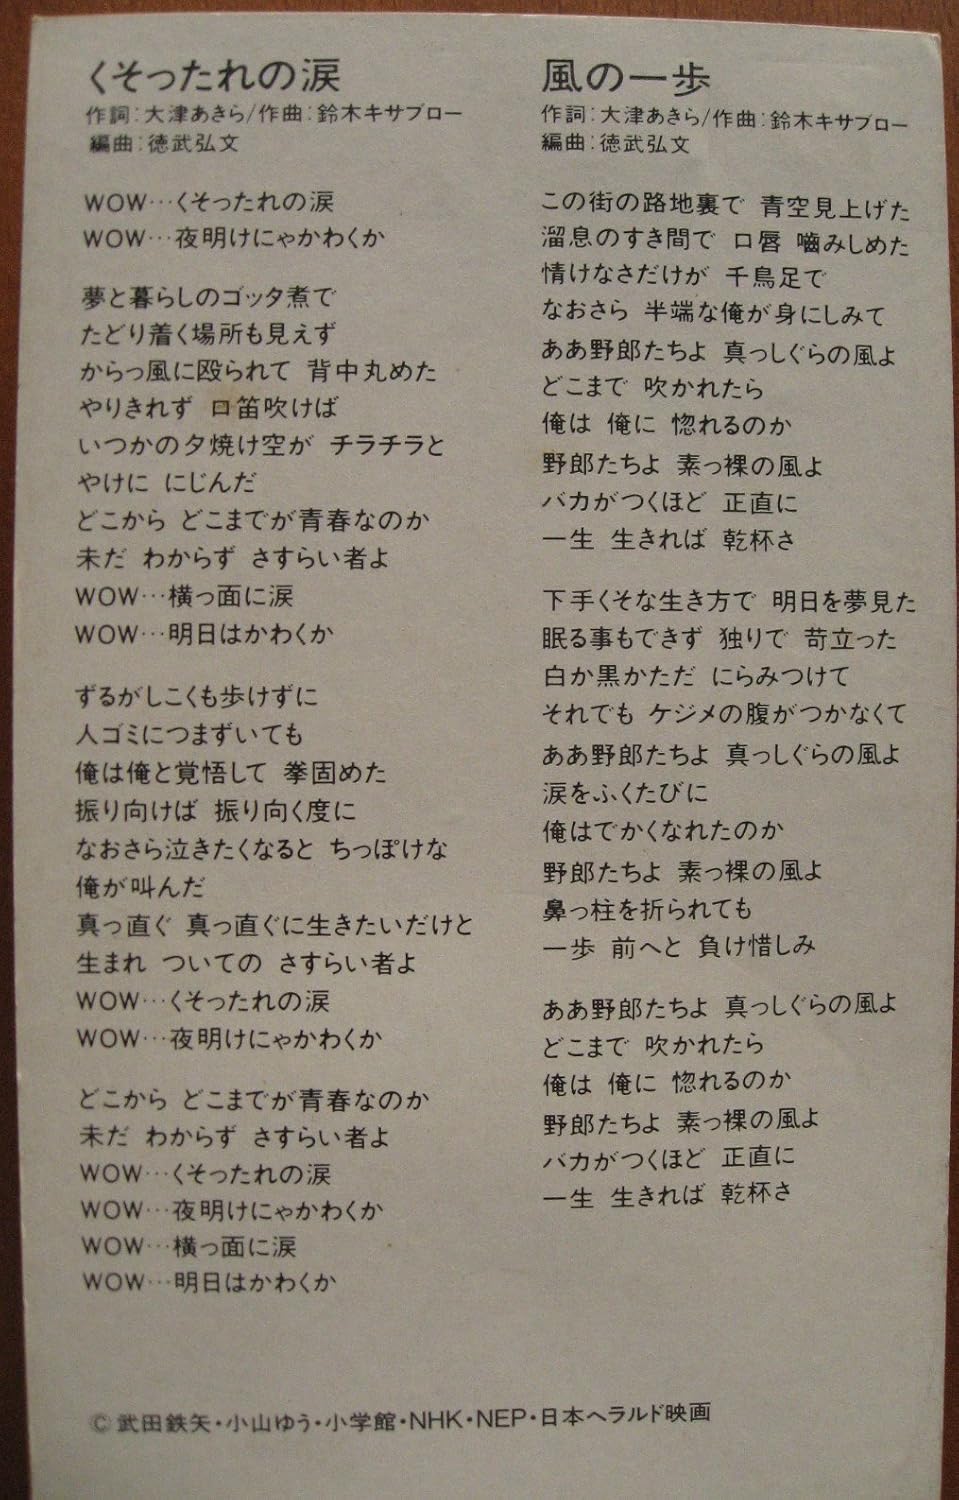 くそったれの涙
作詞:大津あきら/作曲:鈴木キサブロー
編曲:徳武弘文
WOW…くそったれの涙
WOW…夜明けにゃかわくか
夢と暮らしのゴッタ煮で
たどり着く場所も見えず
からっ風に殴られて 背中丸めた
やりきれず 口笛吹けば
いつかの夕焼け空が チラチラと
やけに にじんだ
どこから どこまでが青春なのか
未だ わからず さすらい者よ
WOW…横っ面に涙
WOW…明日はかわくか
ずるがしこくも歩けずに
人ゴミにつまずいても
俺は俺と覚悟して 拳固めた
振り向けば 振り向く度に
なおさら泣きたくなると ちっぽけな
俺が叫んだ
真っ直ぐ 真っ直ぐに生きたいだけと
生まれ ついての さすらい者よ
WOW…くそったれの涙
WOW…夜明けにゃかわくか
どこから どこまでが青春なのか
未だ わからず さすらい者よ
WOW…くそったれの涙
WOW…夜明けにゃかわくか
WOW…横っ面に涙
WOW…明日はかわくか
風の一歩
作詞:大津あきら/作曲:鈴木キサブロー
編曲:徳武弘文
この街の路地裏で 青空見上げた
溜息のすき間で 口唇 嚙みしめた
情けなさだけが 千鳥足で
なおさら 半端な俺が身にしみて
ああ野郎たちよ 真っしぐらの風よ
どこまで 吹かれたら
俺は 俺に 惚れるのか
野郎たちよ 素っ裸の風よ
バカがつくほど 正直に
一生 生きれば 乾杯さ
下手くそな生き方で 明日を夢見た
眠る事もできず 独りで 苛立った
白か黒かただ にらみつけて
それでも ケジメの腹がつかなくて
ああ野郎たちよ 真っしぐらの風よ
涙をふくたびに
俺はでかくなれたのか
野郎たちよ 素っ裸の風よ
鼻っ柱を折られても
一歩 前へと 負け惜しみ
ああ野郎たちよ 真っしぐらの風よ
どこまで 吹かれたら
俺は 俺に 惚れるのか
野郎たちよ 素っ裸の風よ
バカがつくほど 正直に
一生 生きれば 乾杯さ
©武田鉄矢・小山ゆう・小学館・NHK・NEP・日本ヘラルド映画